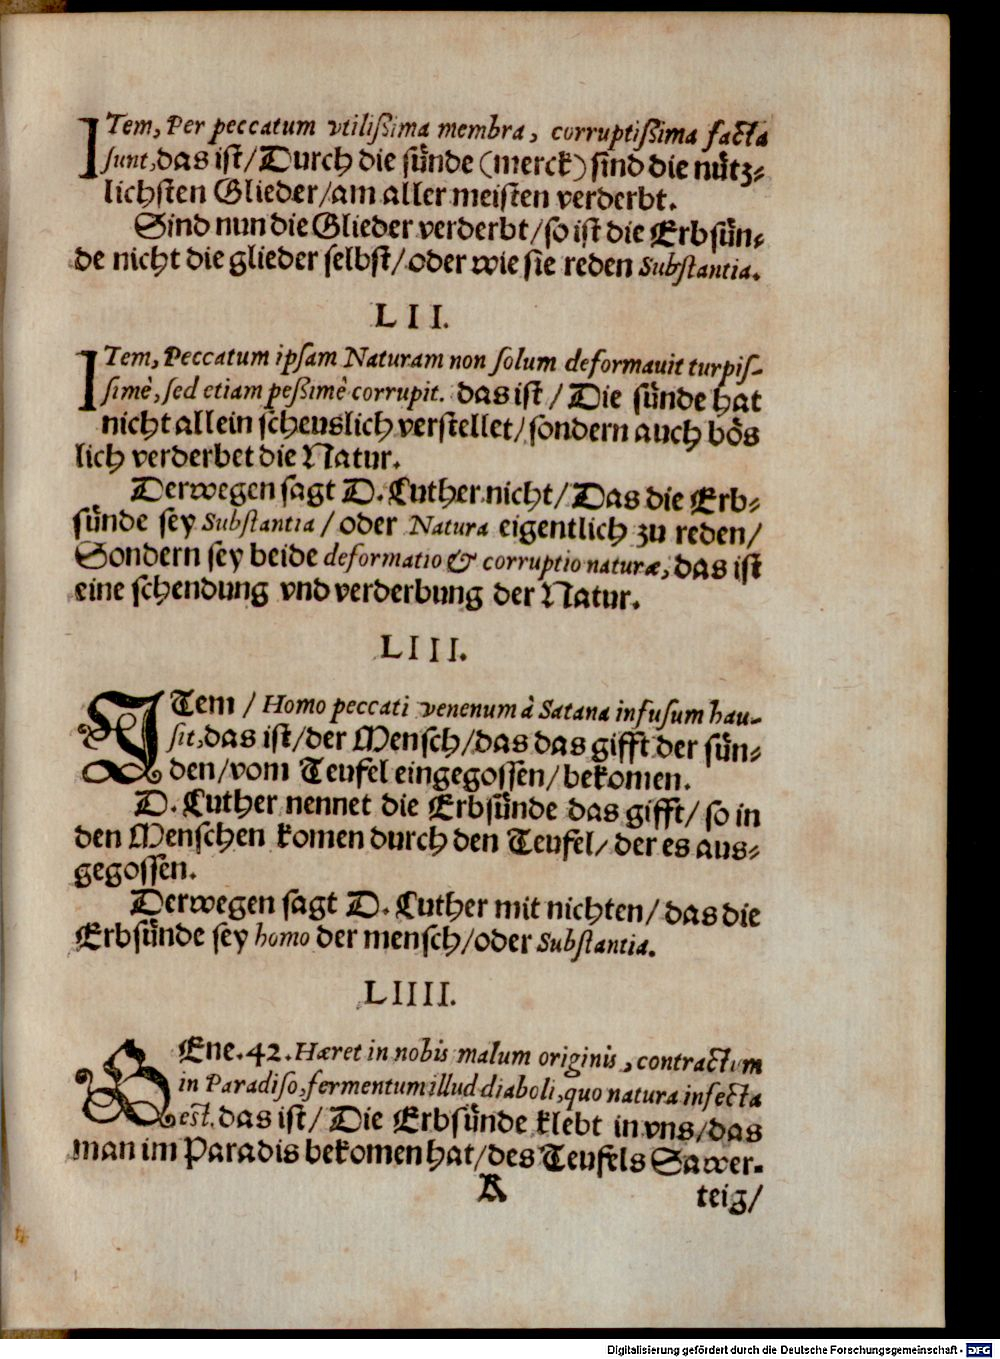 ITem, Per peccatum vtilißima membra, corruptißima facta
sunt, das ist/ Durch die sünde (merck) sind die nütz⸗
lichsten Glieder/ am aller meisten verderbt.
Sind nun die Glieder verderbt/ so ist die Erbsün⸗
de nicht die glieder selbst/ oder wie sie reden Substantia.
LII.
ITem, Peccatum ipsam Naturam non solum deformauit turpis-
simè, sed etiam peßimè corrupit. das ist/ Die sünde hat
nicht allein scheuslich verstellet/ sondern auch bös
lich verderbet die Natur.
Derwegen sagt D. Luther nicht/ Das die Erb⸗
sünde sey Substantia/ oder Natura eigentlich zu reden/
Sondern sey beide deformatio & corruptio naturæ, das ist
eine schendung vnd verderbung der Natur.
LIII.
ITem/ Homo peccati venenum à Satana infusum hau-
sit, das ist/ der Mensch/ das das gifft der sün⸗
den/ vom Teufel eingegossen/ bekomen.
D. Luther nennet die Erbsünde das gifft/ so in
den Menschen komen durch den Teufel/ der es aus⸗
gegossen.
Derwegen sagt D. Luther mit nichten/ das die
Erbsünde sey homo der mensch/ oder Substantia.
LIIII.
GEne. 42. Hæret in nobis malum originis, contractum
in Paradiso, fermentum illud diaboli, quo natura infecta
est. das ist/ Die Erbsünde klebt in vns/ das
man im Paradis bekomen hat/ des Teufels Sawer-
K teig/
Digitalisierung gefördert durch die Deutsche Forschungsgemeinschaft - DFG